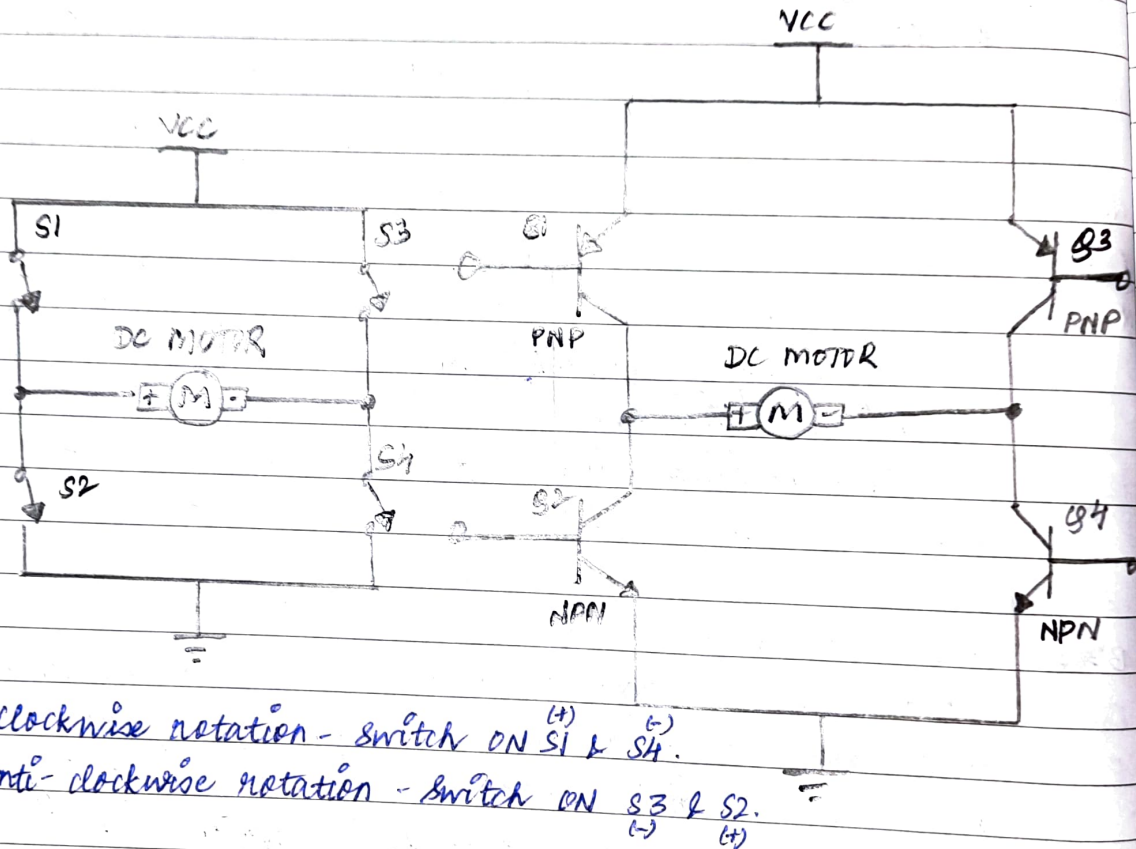 VCC
VCC
S1
S3
Q1
Q3
PNP
PNP
DC MOTOR
DC MOTOR
+ M -
+ M -
S2
S4
Q2
Q4
NPN
NPN
clockwise rotation - switch ON S1 & S4.
(+) (-)
nti-clockwise rotation - switch ON S3 & S2.
(-) (+)